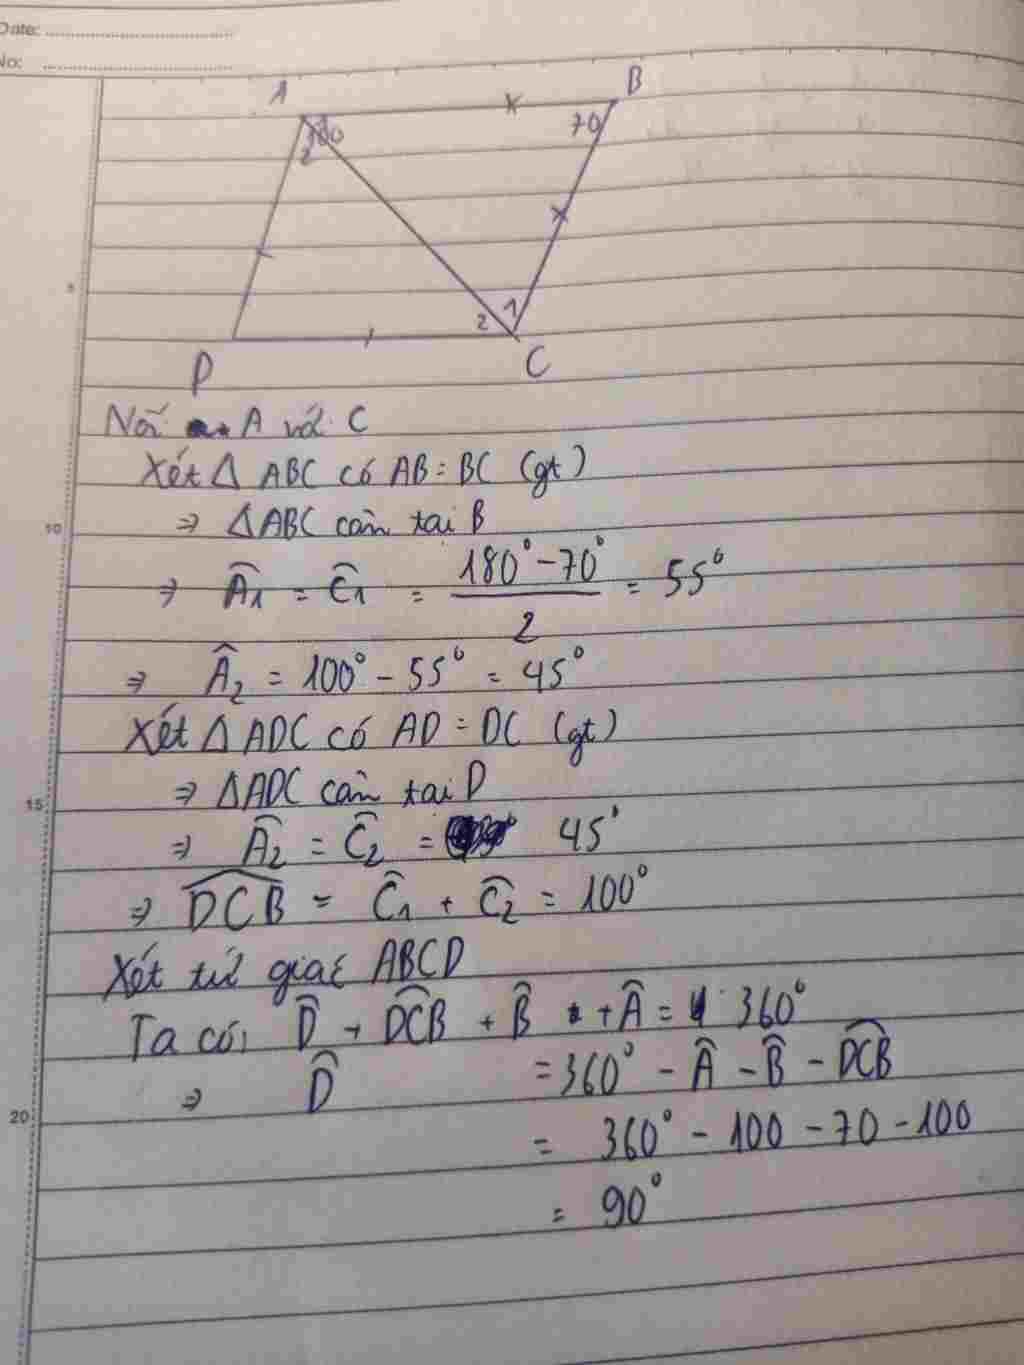 Date:
No:
A
B
100
70
2
2 1
D
C
5
Nối A với C
Xét Δ ABC có AB = BC (gt)
10
⇒ ΔABC cân tại B
⇒ Â₁ = Ĉ₁ = (180° - 70°)/2 = 55°
⇒ Â₂ = 100° - 55° = 45°
Xét Δ ADC có AD = DC (gt)
15
⇒ ΔADC cân tại D
⇒ Â₂ = Ĉ₂ = 45°
⇒ DCB̂ = Ĉ₁ + Ĉ₂ = 100°
Xét tứ giác ABCD
Ta có: D̂ + DCB̂ + B̂ + Â = 360°
20
⇒ D̂ = 360° - Â - B̂ - DCB̂
= 360° - 100 - 70 - 100
= 90°